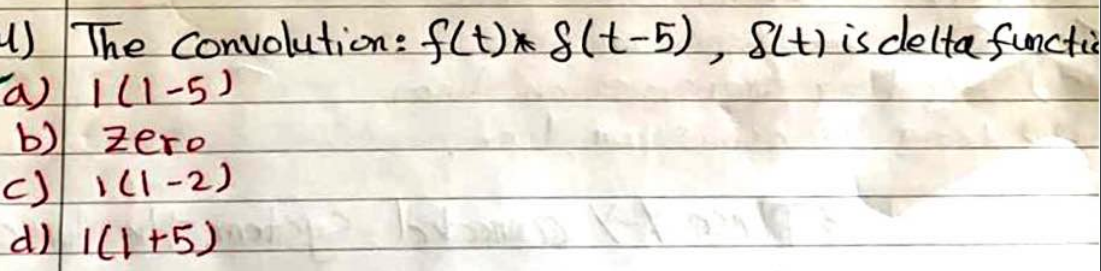 1) The Convolution: f(t) * δ(t-5), δ(t) is delta functio
a) 1(1-5)
b) zero
c) 1(1-2)
d) 1(1+5)